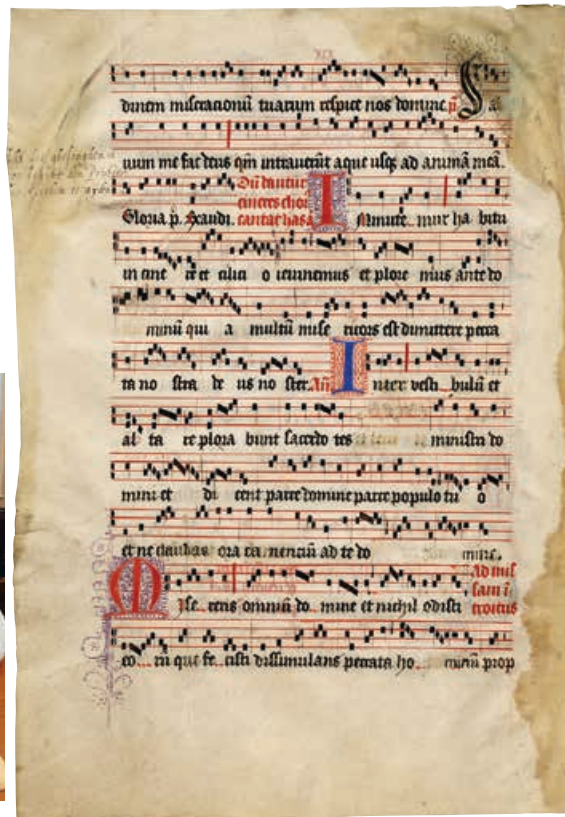 XIX
dinem miseracionũ tuarum respice nos domine. p̃ Sal
uum me fac deus qm̃ intrauerũt aque usq; ad animã meã.
Gloria p. Exaudi. Dũ dantur cineres chor cantat has añ Inmute mur ha bitu
in cine re et cilici o ieiunemus et plore mus ante do
minũ qui a multũ mise ricors est dimittere pecca
ta no stra de us no ster. Añ Inter vesti bulũ et
al ta re plora bunt sacerdo tes ministri do
mini et di cent parce domine parce populo tu o
et ne claudas ora ca nenciũ ad te do mine.
Ad mis sam ĩ troitus
Mise reris omniũ do mine et nichil odisti
eo rũ que fe cisti dissimulans peccata ho minũ prop